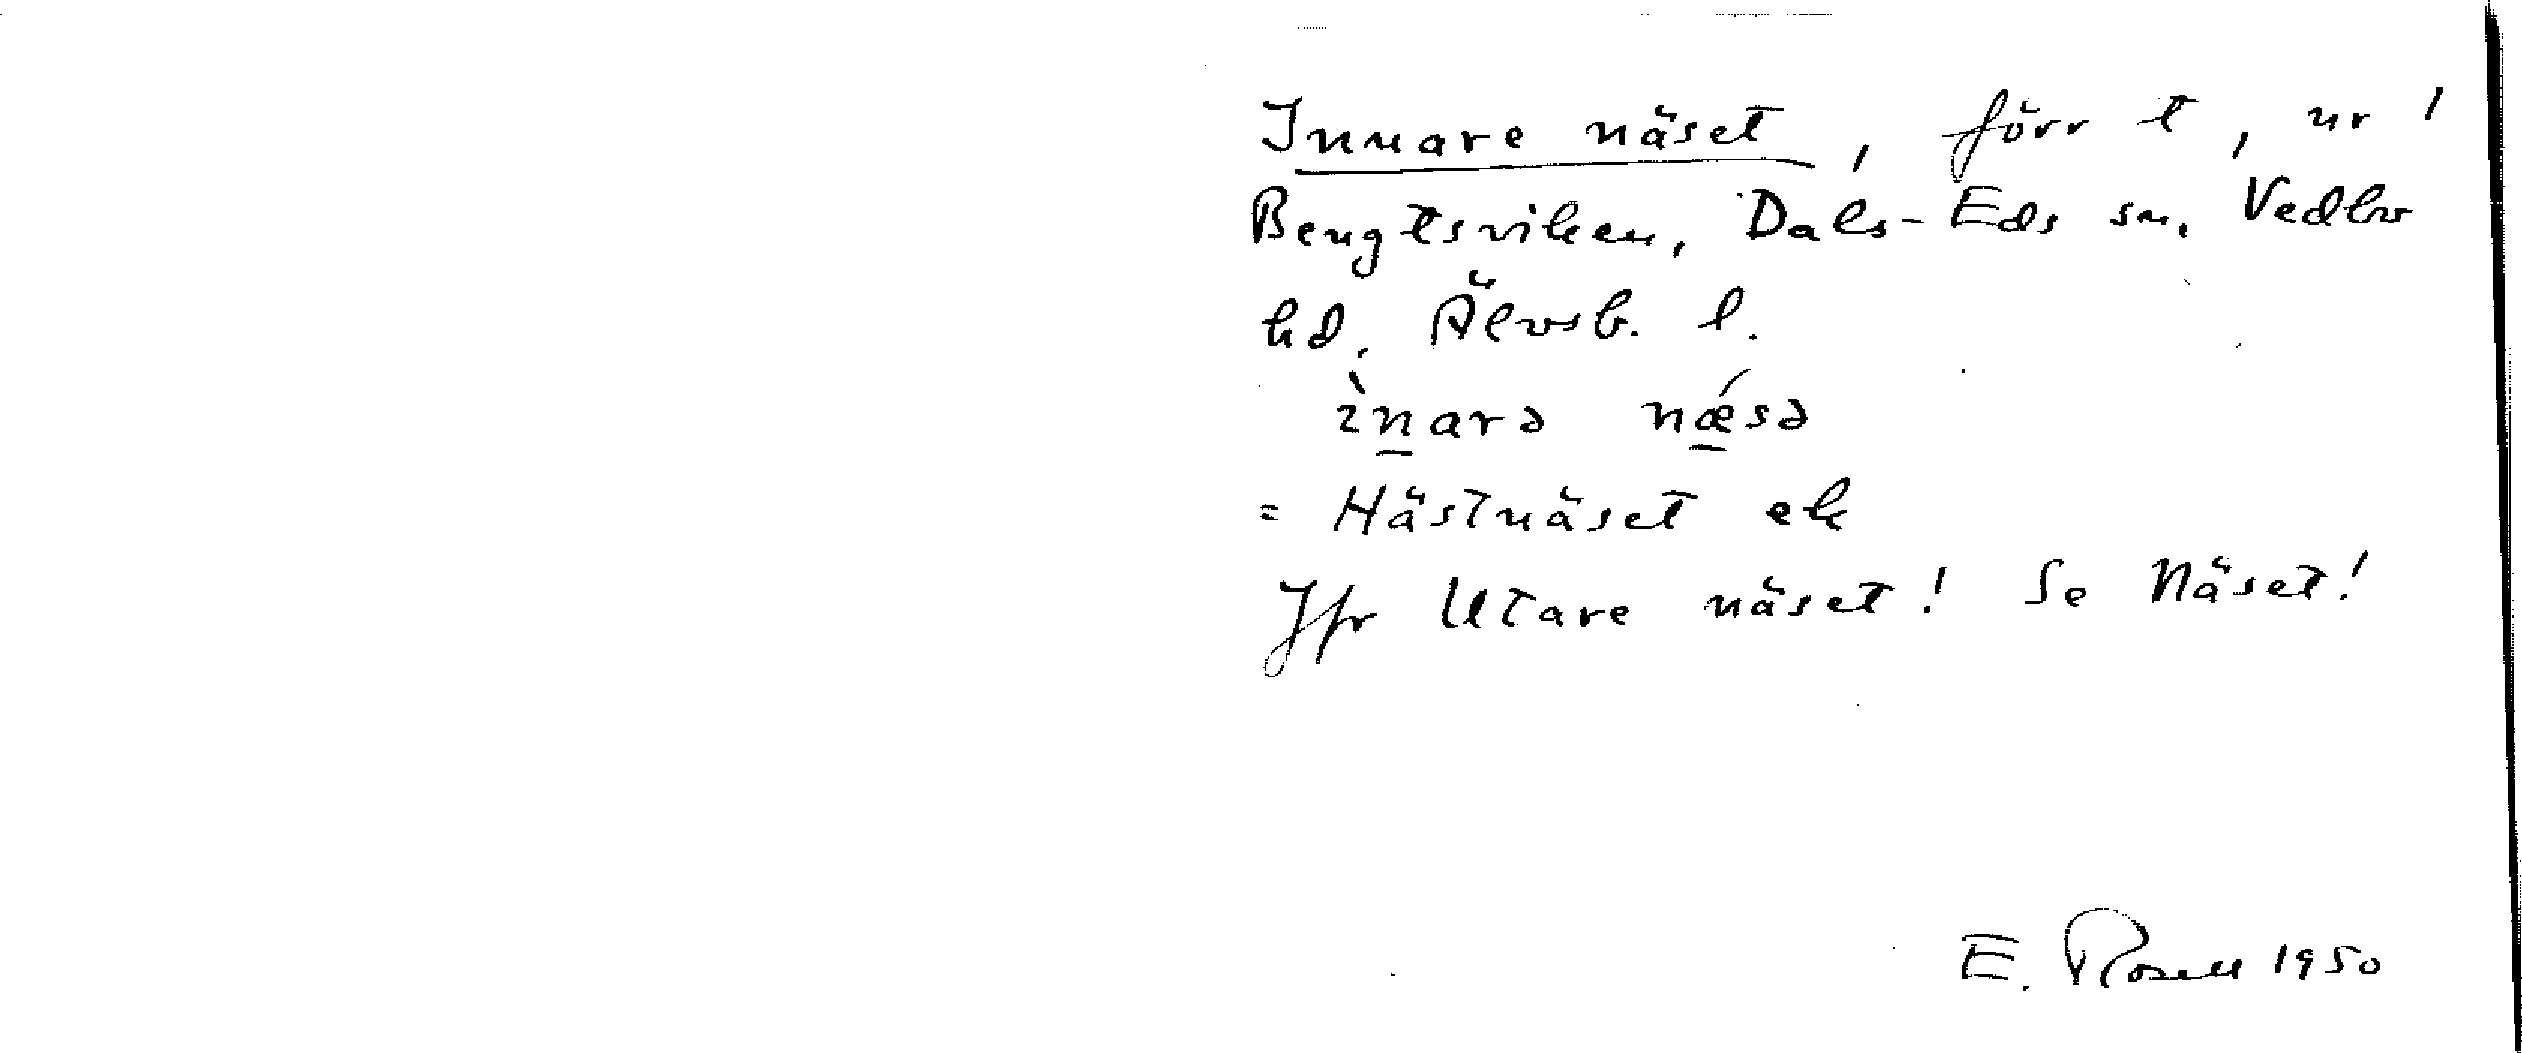 Innare näset, förr t, ur 1
Bengtsviken, Dals-Eds sn. Vedbo
hd, Älvsb. l.
ìnarə nǽsə
= Hästnäset ek
Jfr Utare näset! Se Näset!
E. Rosell 1950